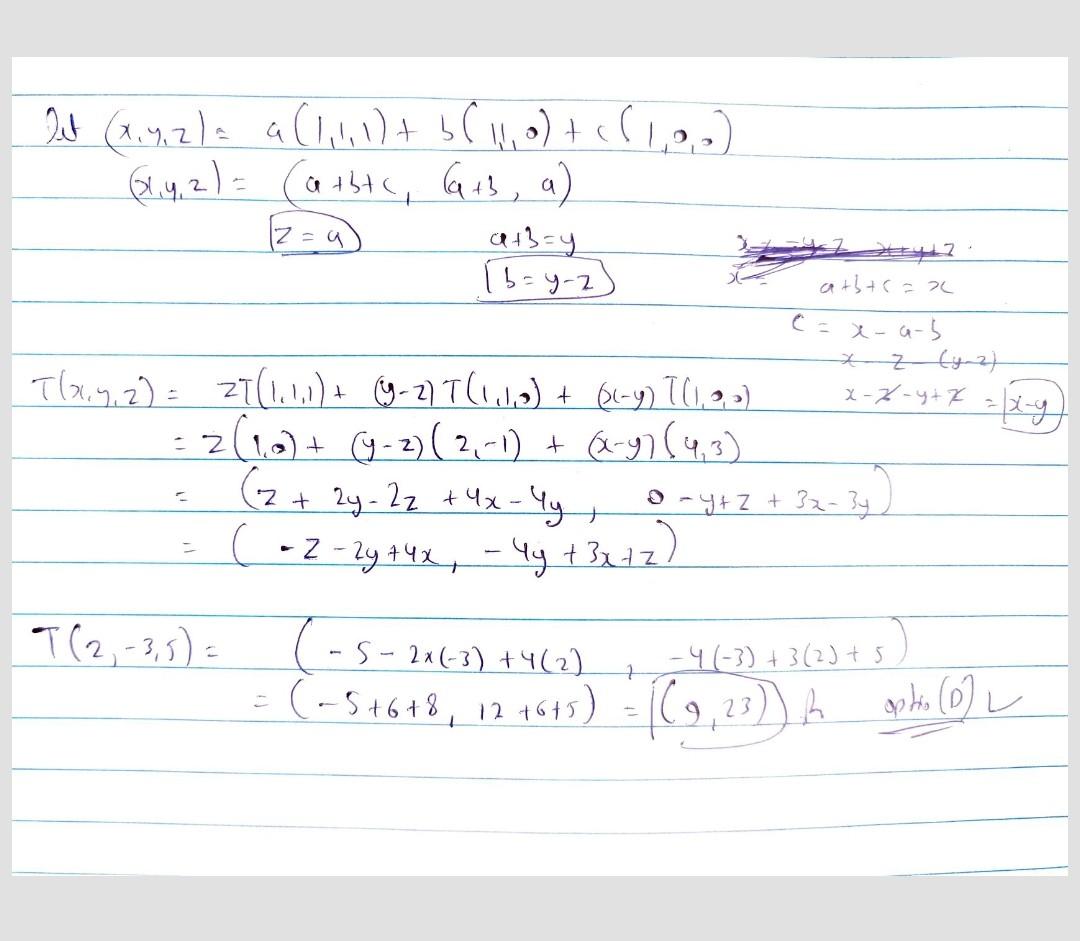 let (x,y,z) = a(1,1,1) + b(1,1,0) + c(1,0,0)
(x,y,z) = (a+b+c, (a+b, a)
z = a
a+b=y
b = y-z
a+b+c = x
c = x-a-b
x-z-(y-z)
x-z-y+z = x-y
T(x,y,z) = zT(1,1,1) + (y-z)T(1,1,0) + (x-y)T(1,0,0)
= z(1,0) + (y-z)(2,-1) + (x-y)(4,3)
= (z + 2y-2z +4x-4y, 0-y+z+3x-3y)
= (-z-2y+4x, -4y+3x+z)
T(2,-3,5) = (-5-2x(-3)+4(2), -4(-3)+3(2)+5)
= (-5+6+8, 12+6+5) = (9,23) option (D)